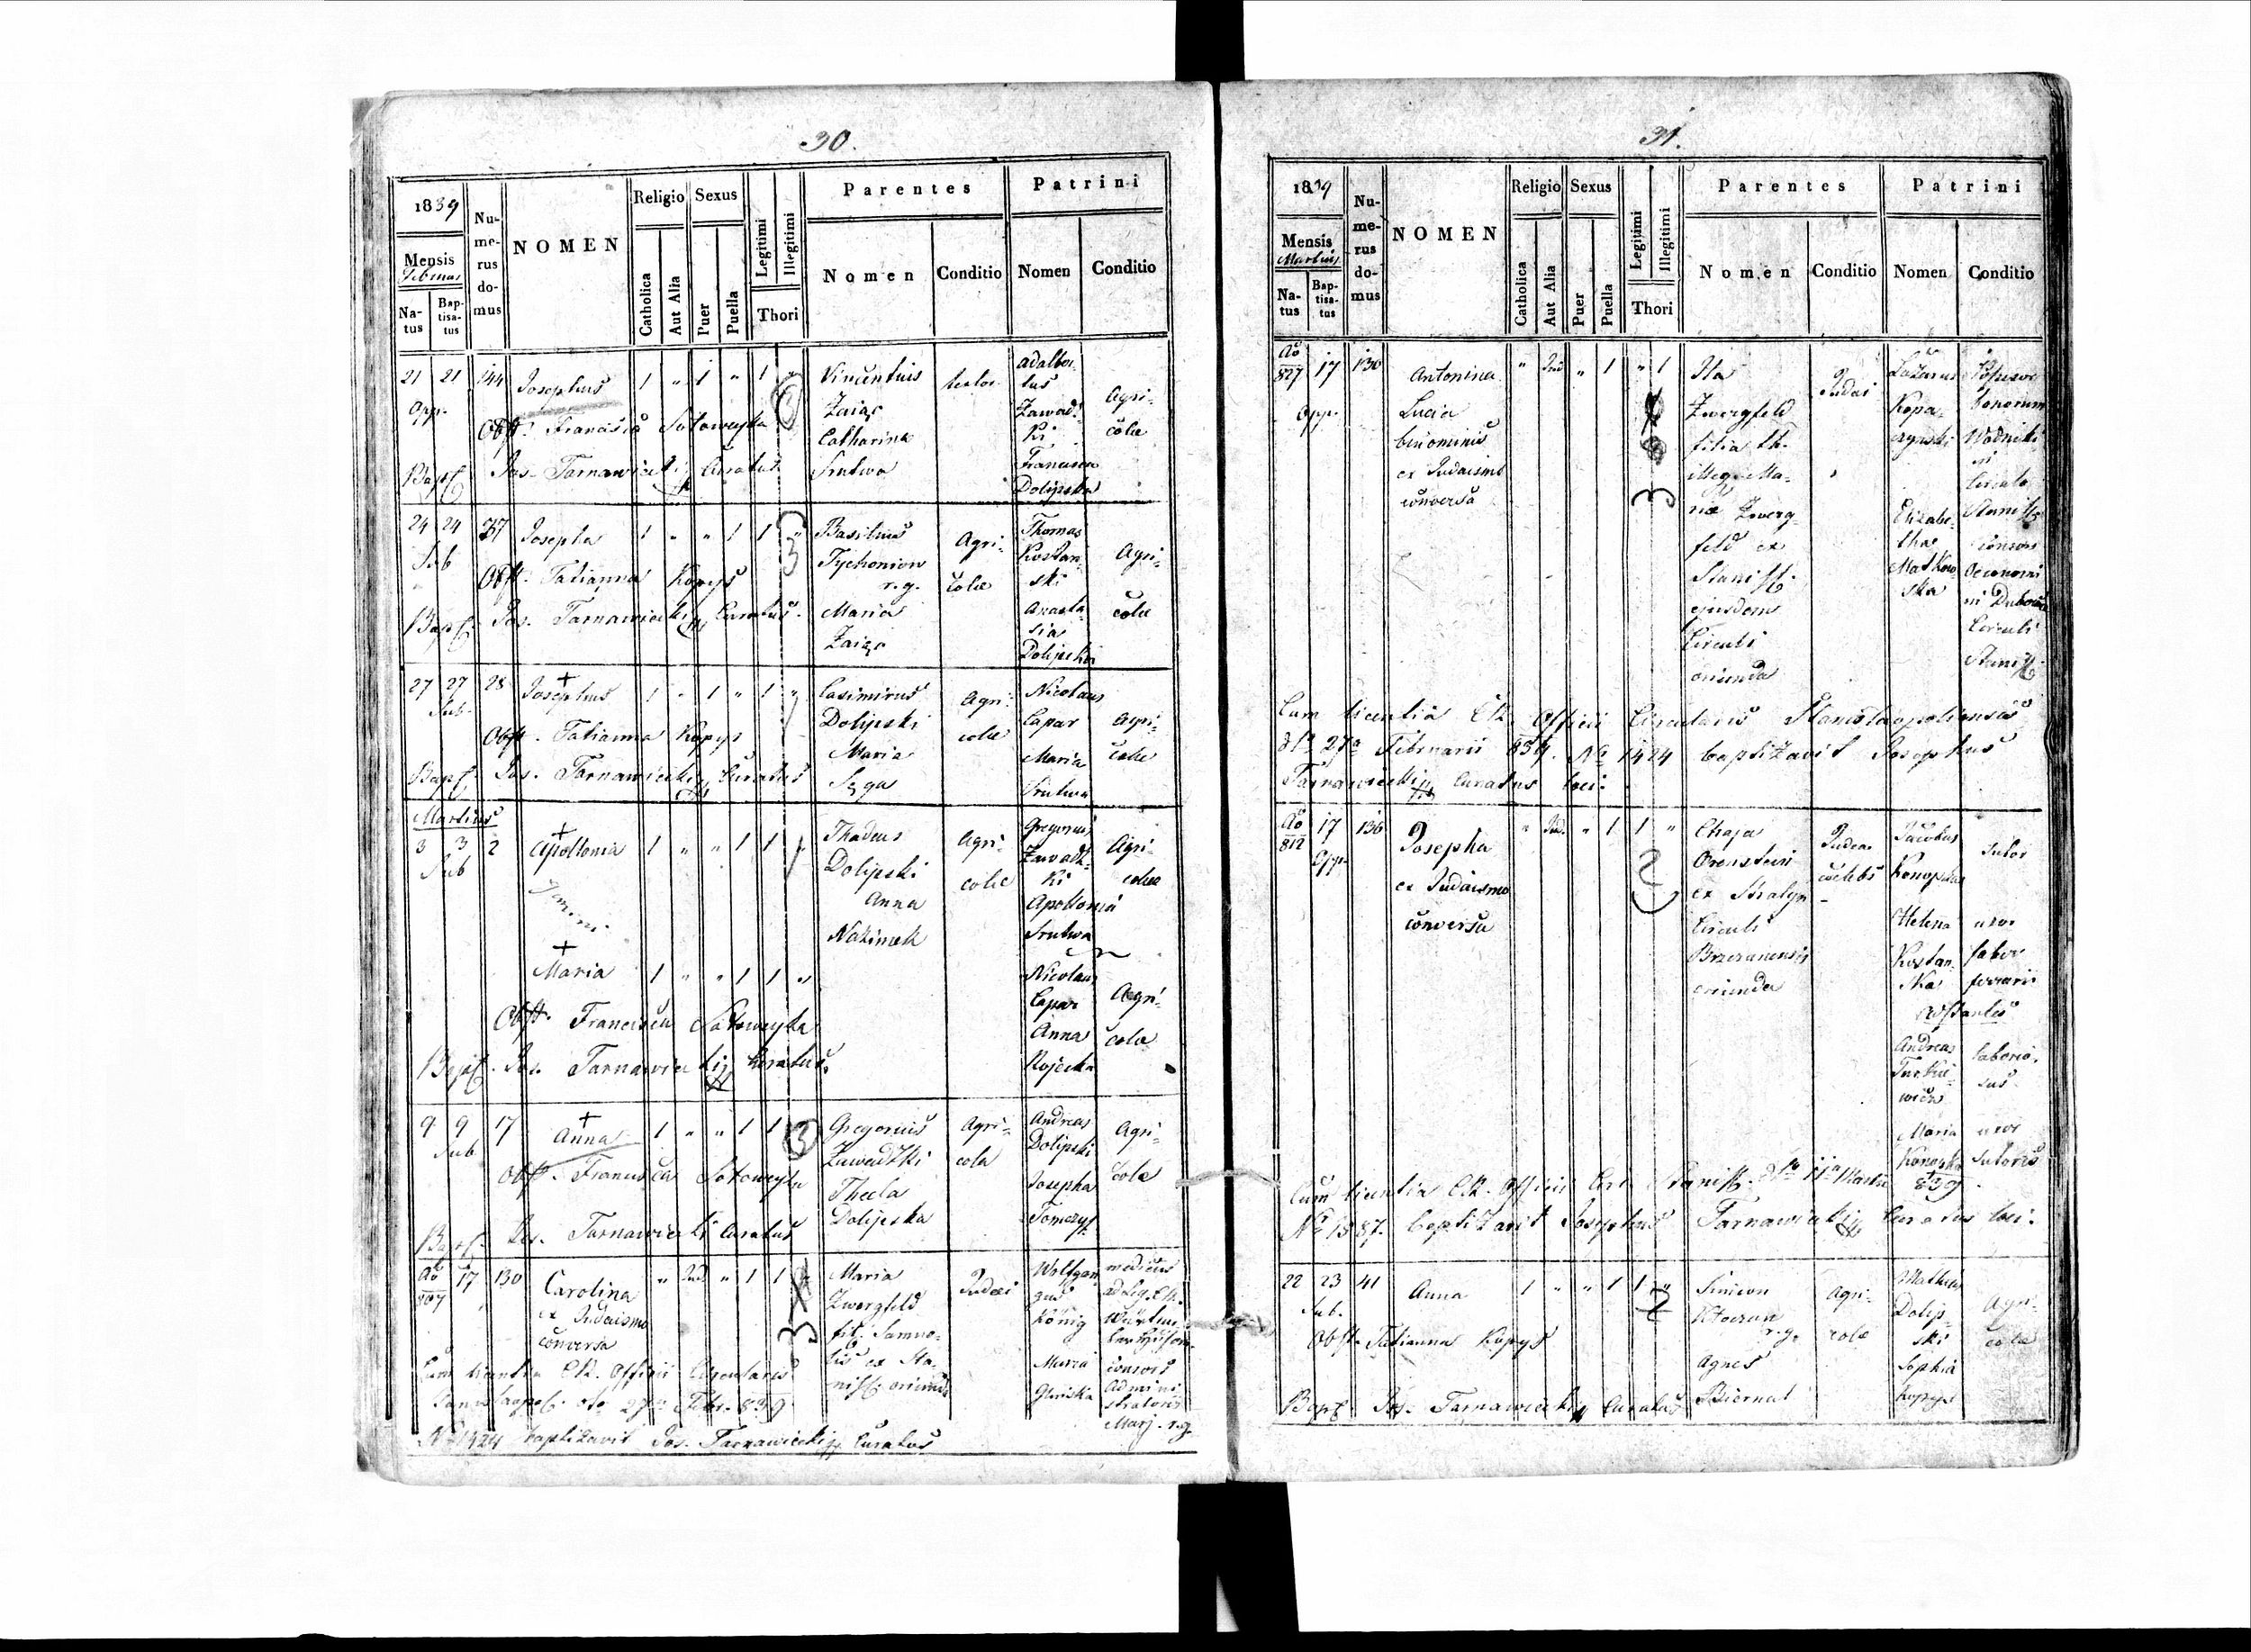 30.
1839
Mensis
Februar
Na-
tus
Bap-
tisa-
tus
Nu-
me-
rus
do-
mus
NOMEN
Religio
Catholica
Aut Alia
Sexus
Puer
Puella
Legitimi
Illegitimi
Thori
Parentes
Nomen
Conditio
Patrini
Nomen
Conditio
21 21 144 Josephus 1 " 1 " 1 "
Opp.
Obst. Francisca Sotoweyka
Bapt. Jos. Tarnawiecki Curatus
Vincentius
Zaiąc
Catharina
Srutwa
Adalber
tus
Zawadz
ki
Francisca
Dolipska
Agri-
colæ
24 24 37 Josepha 1 " " 1 1 "
Sub
Obst. Tatianna Kopys
Bapt. Jos. Tarnawiecki Curatus.
Basilius
Tychoniow
r. g.
Maria
Zaiąc
Agri-
colæ
Thomas
Kostan-
ski
Anasta
sia
Dolipska
Agri-
colæ
27 27 28 Josephus 1 " 1 " 1 "
Sub.
Obst. Tatianna Kopys
Bapt. Jos. Tarnawiecki Curatus
Casimirus
Dolipski
Maria
Sęga
Agri-
colæ
Nicolaus
Capar
Maria
Srutwa
Agri-
colæ
Martius
3 3 2 Apollonia 1 " " 1 1
Sub
Gemini
Maria 1 " " 1 1 "
Obst. Francisca Sotoweyka
Bapt. Jos. Tarnawiecki Curatus.
Thadeus
Dolipski
Anna
Nakimek
Agri-
colæ
Gregorius
Zawadz-
ki
Apollonia
Srutwa
Agri-
colæ
Nicolaus
Capar
Anna
Kojecka
Agri-
colæ
9 9 17 Anna 1 " " 1 1
Sub
Obst. Francisca Sotoweyka
Bapt. Jos. Tarnawiecki Curatus
Gregorius
Zawadzki
Thecla
Dolipska
Agri-
colæ
Andreas
Dolipski
Josepha
Tomczys
Agri-
colæ
Ao
807 17 130 Carolina " Jud " 1 1
ex Judaismo
conversa
Maria
Zwergfeld
fil. Samue-
lis ex Sta-
nisl. oriunda
Judæi
Wolfgan
gus
König
Maria
medicus
consors
Admini-
stratoris
Marj. r. g.
Cum licentia C.R. Officii Circularis
Stanislaopol. dto 27a Febr. 839
No 1424 baptizavit Jos. Tarnawiecki Curatus
31.
1839
Mensis
Martius
Na-
tus
Bap-
tisa-
tus
Nu-
me-
rus
do-
mus
NOMEN
Religio
Catholica
Aut Alia
Sexus
Puer
Puella
Legitimi
Illegitimi
Thori
Parentes
Nomen
Conditio
Patrini
Nomen
Conditio
Ao
827 17 130 Antonina " Jud " 1 " 1
Opp.
Lucia
binominis
ex Judaismo
conversa
Ita
Zwergfeld
filia th.
illeg. Ma-
riæ Zwerg-
feld ex
Stanisl.
ejusdem
Circuli
oriunda
Judæi
Lazarus
Kopa-
czynski
Elizabe-
tha
Matkow-
ska
bonorum
Circulo
Stanisl.
consors
Oeconomi
Circuli
Stanisl.
Cum licentia C.R. Officii Circularis Stanislaopoliensis
dto 27a Februarii 839. No 1424 baptizavit Josephus
Tarnawiecki Curatus loci.
Ao
812 17 136 Josepha " Jud. " 1 1 "
Opp.
ex Judaismo
conversa
Chaja
Orenstein
ex
Circuli
Brzezanensis
oriunda
Judea
cælebs
Jacobus
Konopka
Helena
Kostan-
ska
Sutor
uxor
fabri
ferrarii
Astantes
Andreas
Turkie-
wicz
laborio-
sus
Maria
Konopka
uxor
Sutoris
Cum licentia C.R. Officii Circ. Stanisl. dto 11a Martii 839
No 1387. baptizavit Josephus Tarnawiecki Curatus loci.
22 23 41 Anna 1 " " 1 1 "
Sub.
Obst. Tatianna Kopys
Bapt. Jos. Tarnawiecki Curatus
Simeon
r. g.
Agnes
Biernat
Agri-
colæ
Mathias
Dolip-
ski
Sophia
Kopys
Agri-
colæ